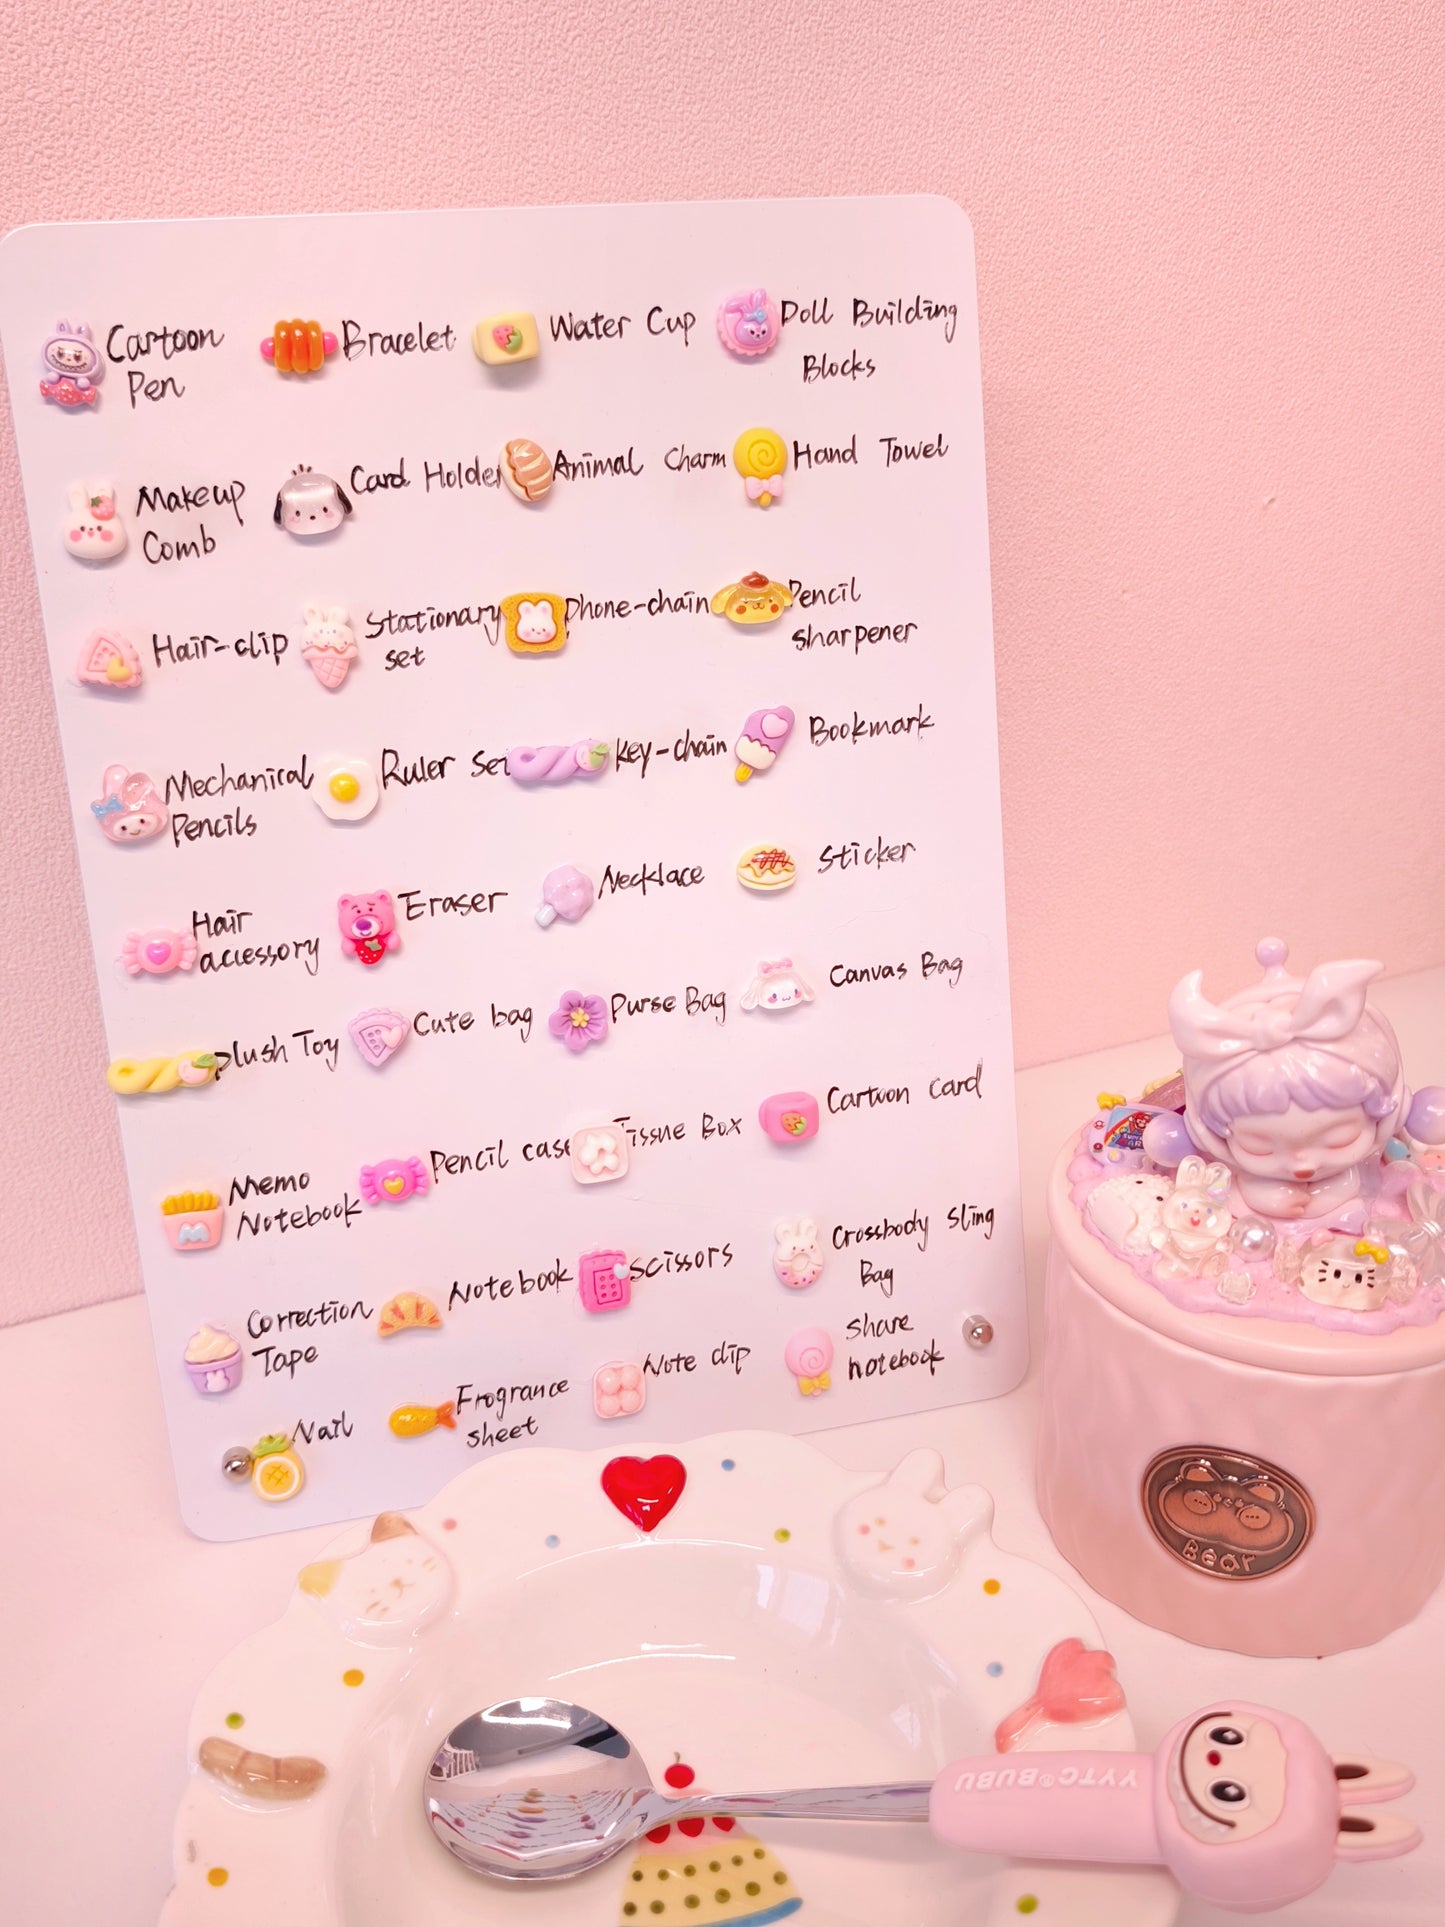 Cartoon
Pen
Bracelet
Water Cup
Doll Building
Blocks
Makeup
Comb
Card Holder
Animal Charm
Hand Towel
Hair-clip
Stationary
set
Phone-chain
Pencil
sharpener
Mechanical
Pencils
Ruler Set
key-chain
Bookmark
Hair
accessory
Eraser
Necklace
Sticker
plush Toy
Cute bag
Purse Bag
Canvas Bag
Memo
Notebook
Pencil case
Tissue Box
Cartoon card
Correction
Tape
Notebook
Scissors
Crossbody Sling
Bag
Nail
Frogrance
sheet
Note clip
share
notebook
Bear
YYTC®BUBU